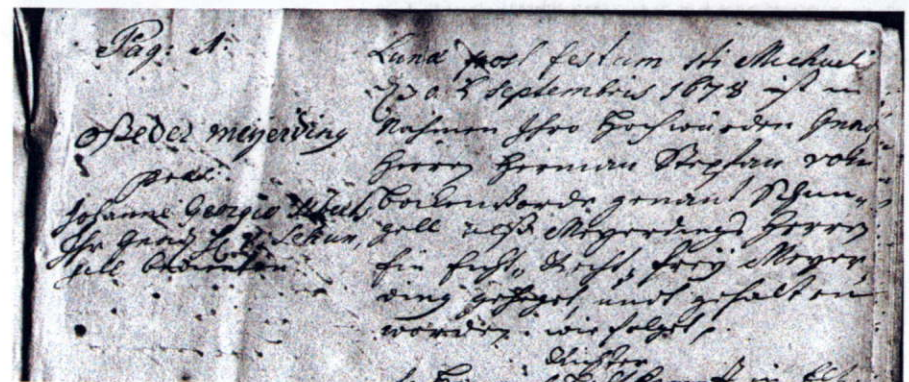 Pag: 1.
Oßeder meyerding
præs:
Johanne Georgio
Ihr Gnad. H. v. Schun,
gell bedienten
Lunæ post festum sti Michaeli
d. Septembris 1678 ist in
Nahmen Ihro Hochwürden Gnad
Herrn Herman Stephan von
bockenVorde genant Schun,,
gell alß Meyerdings Herrn
Ein Echt, Recht, freÿ Meyer,
ding geheget undt gehalten
worden. wie folget,
Richter